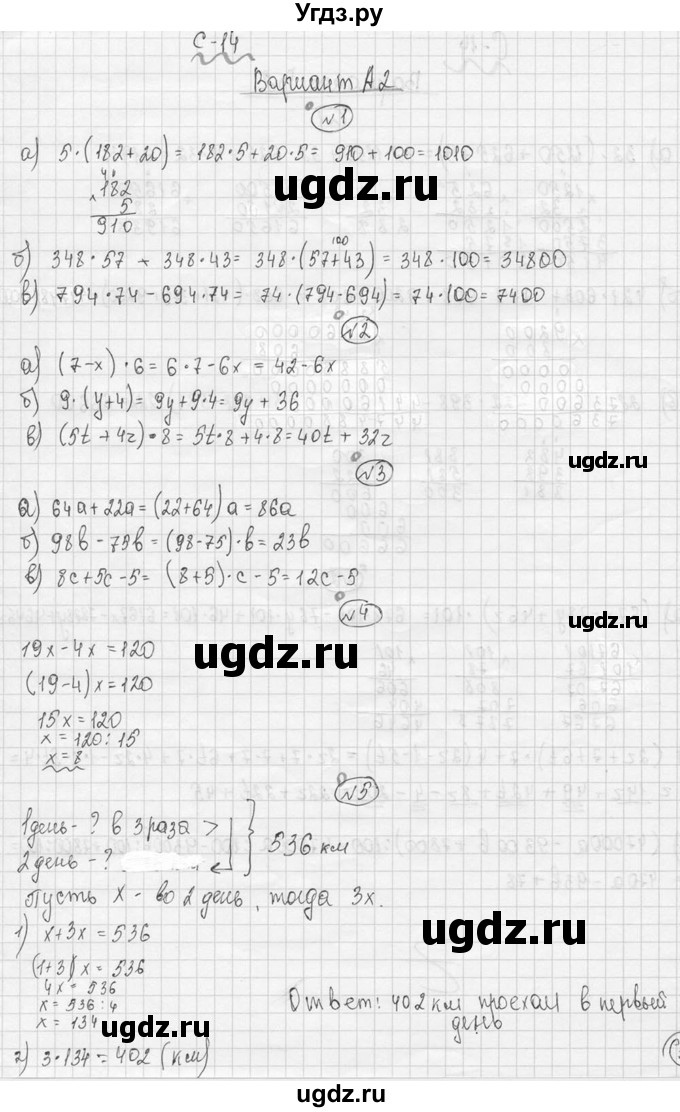 Угдз.ру
С-14
Вариант А2
№1
а) 5·(182+20)= 182·5+20·5= 910+100=1010
4 1
× 182
5
910
ugdz.ru
100
б) 348·57 + 348·43= 348·(57+43)=348·100=34800
в) 794·74-694·74= 74·(794-694)=74·100=7400
№2
а) (7-x)·6=6·7-6x = 42-6x
б) 9·(y+4)= 9y+9·4=9y+36
в) (5t+4z)·8=5t·8+4·8=40t+32z
ugdz.ru
№3
а) 64a+22a=(22+64)a=86a
б) 98b-75b=(98-75)·b=23b
в) 8c+5c-5= (8+5)·c-5=12c-5
№4
ugdz.ru
19x-4x=120
ugdz.ru
(19-4)x=120
15x=120
x=120:15
x=8
№5
1 день-? в 3 раза >
536 км
2 день-?
ugdz.ru
Пусть x- во 2 день, тогда 3x.
1) x+3x=536
(1+3)x=536
4x=536
x=536:4
x=134
Ответ: 402 км проехал в первый
день
ugdz.ru
2) 3·134=402 (км)
ugdz.ru
ugdz.ru